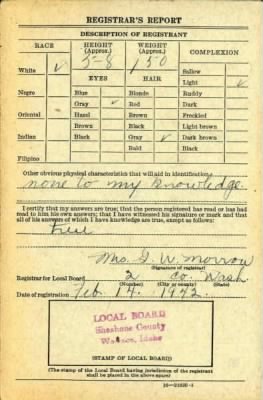 REGISTRAR'S REPORT
DESCRIPTION OF REGISTRANT
RACE HEIGHT (Approx.) WEIGHT (Approx.) COMPLEXION
5-8 150
White ✓ Sallow
EYES HAIR Light ✓
Negro Blue Blonde Ruddy
Gray ✓ Red Dark
Oriental Hazel Brown Freckled
Brown Black Light brown
Indian Black Gray ✓ Dark brown
Bald Black
Filipino
Other obvious physical characteristics that will aid in identification
none to my knowledge.
I certify that my answers are true; that the person registered has read or has had
read to him his own answers; that I have witnessed his signature or mark and that
all of his answers of which I have knowledge are true, except as follows:
true
Mrs. I. W. Morrow
(Signature of registrar)
Registrar for Local Board 2 Co. Wash
(Number) (City or county) (State)
Date of registration Feb. 14. 1942.
LOCAL BOARD
Shoshone County
Wallace, Idaho
(STAMP OF LOCAL BOARD)
(The stamp of the Local Board having jurisdiction of the registrant
shall be placed in the above space)